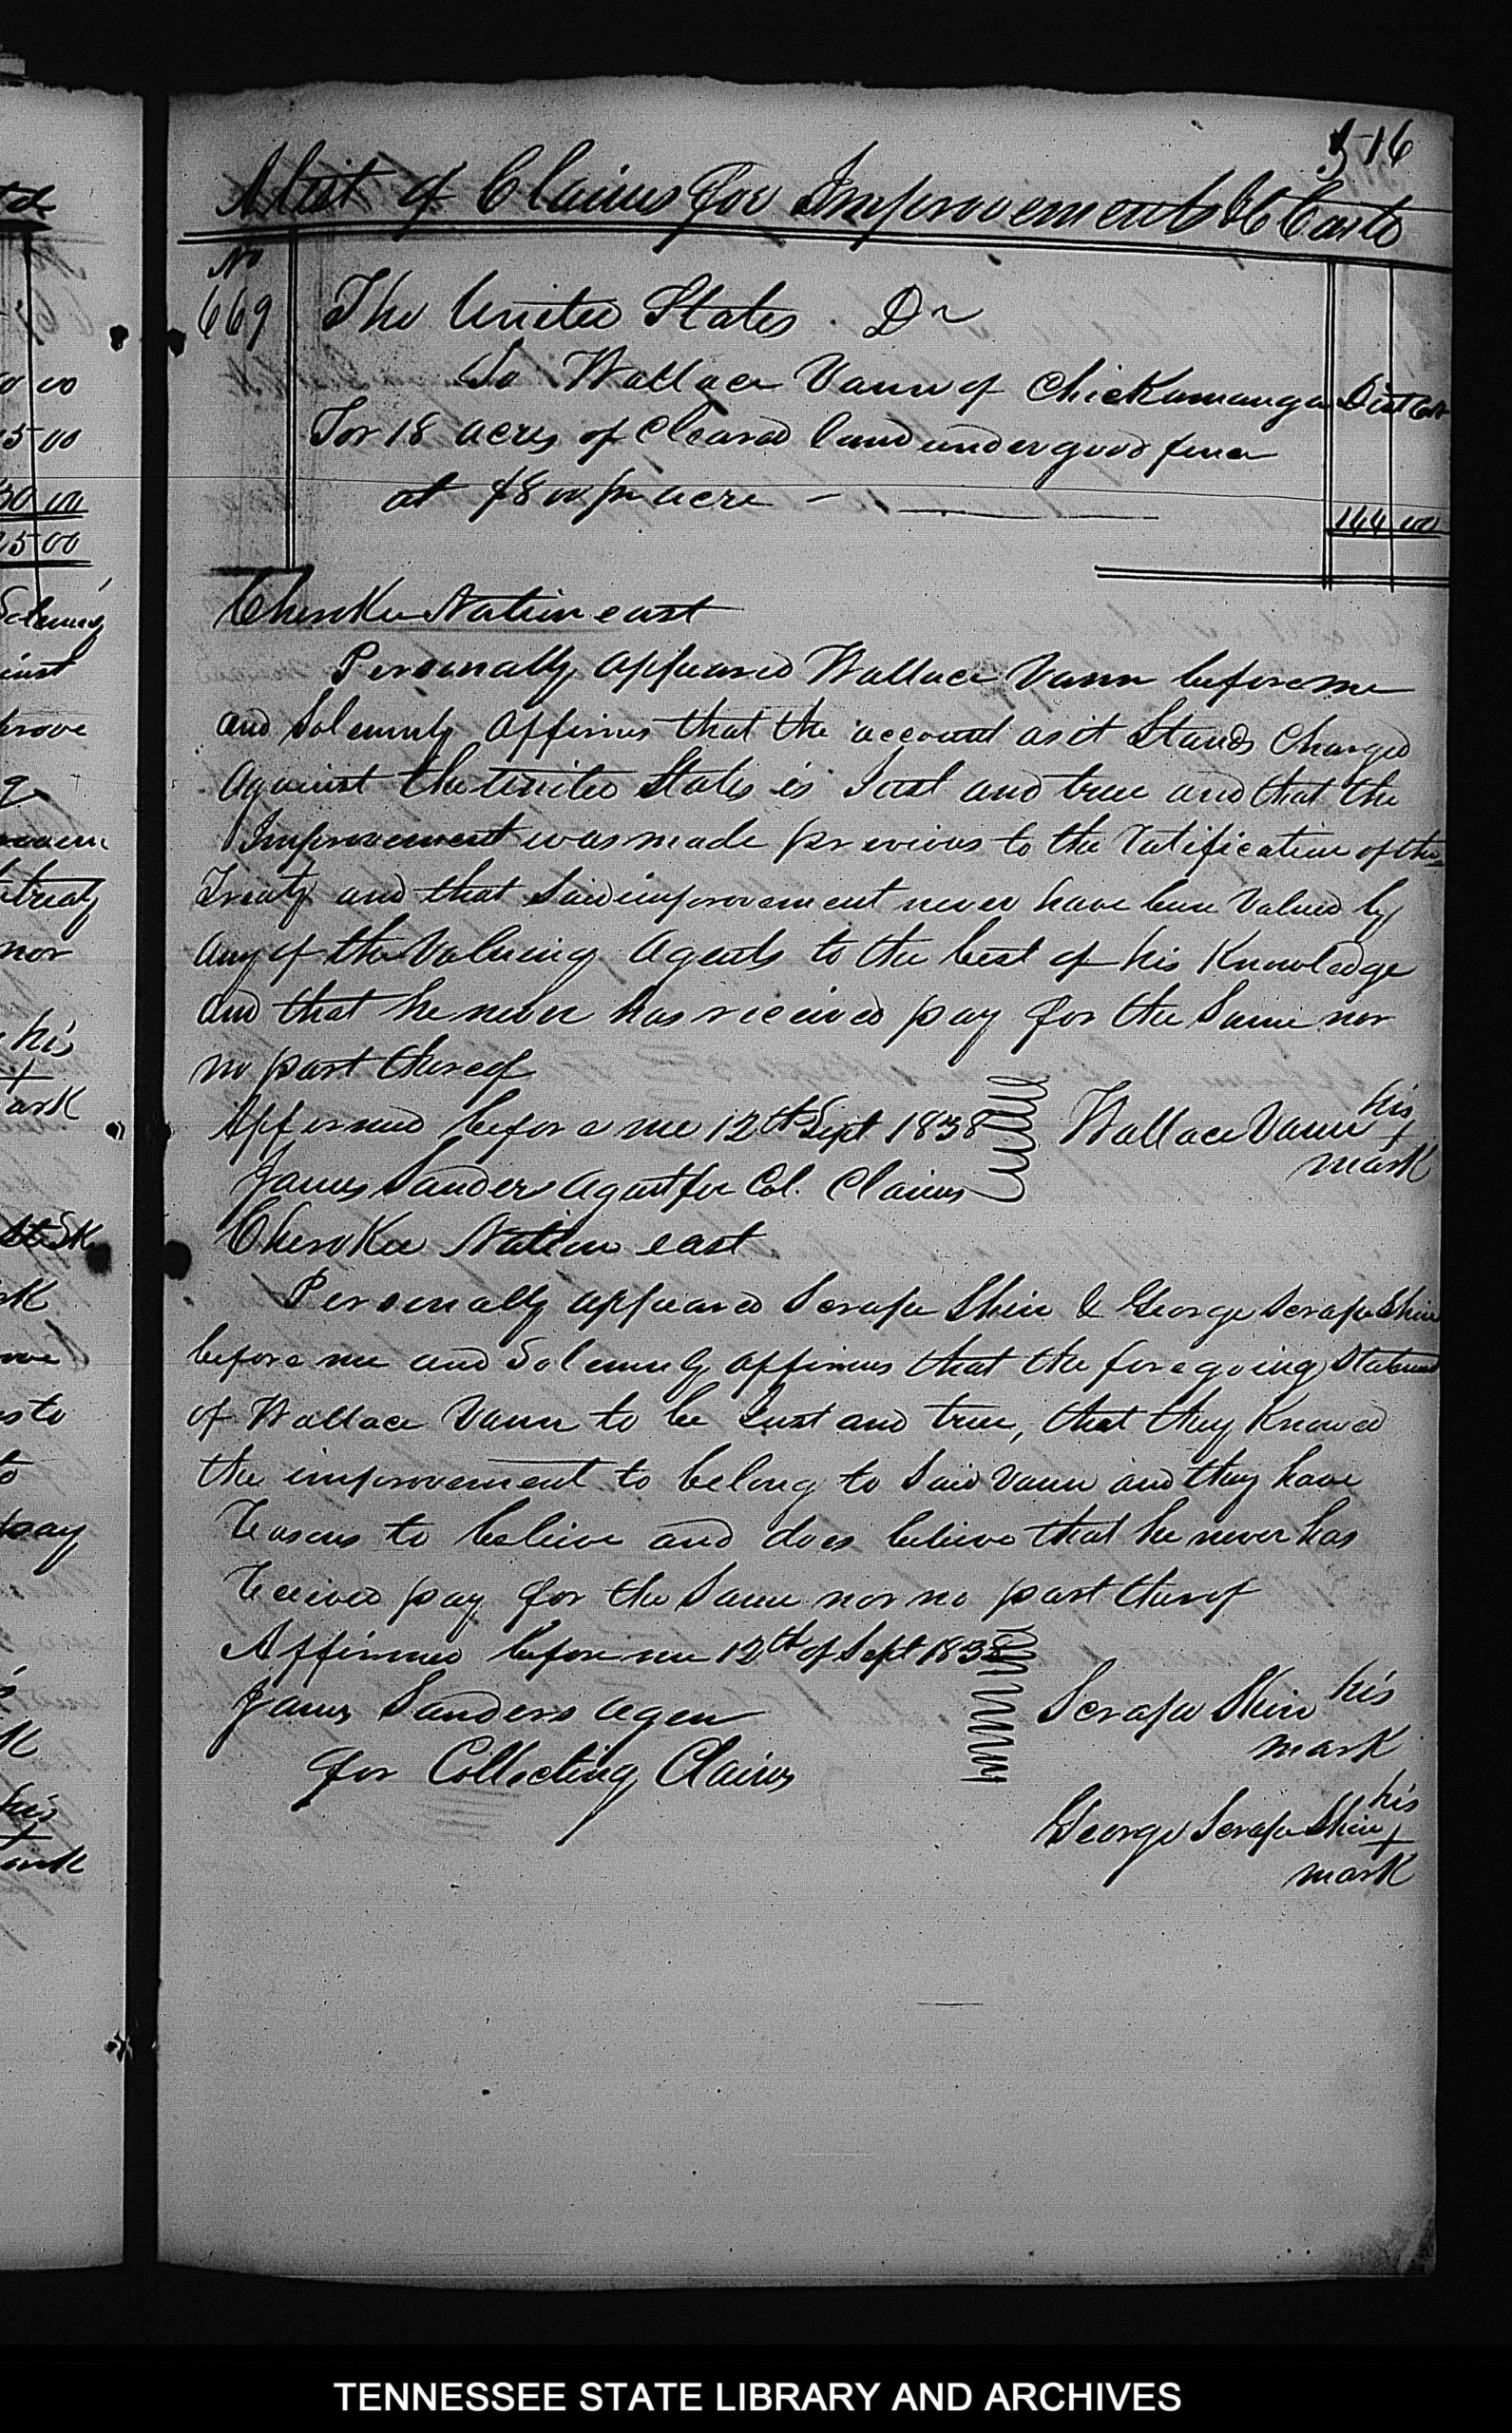 516
A List of Claims for Improvements &c Cont'd
No
669 The United States Dr
To Wallace Vann of Chickamauga District
For 18 acres of Cleared land under good fence
at $8 00 pr acre - 144 00
Cherokee Nation east
Personally appeared Wallace Vann before me
and Solemnly affirms that the account as it Stands Charged
Against the United States is Just and true and that the
Improvement was made previous to the Ratification of the
Treaty and that Said improvement never have been Valued by
any of the Valueing Agents to the best of his Knowledge
and that he never has received pay for the Same nor
no part thereof
Affirmed before me 12th Sept 1838 Wallace Vann his + mark
James Sanders agent for Col. Claims
Cherokee Nation east
Personally appeared Scrape Shin & George Scrape Shin
before me and Solemnly affirms that the foregoing Statement
of Wallace Vann to be Just and true, that they Knowed
the improvement to belong to Said Vann and they have
Reasons to believe and does believe that he never has
Received pay for the Same nor no part therof
Affirmed before me 12th of Sept 1838
James Sanders agen
for Collecting Claims
Scrape Shin his
mark
George Scrape Shin his +
mark
00
15 00
30 00
25 00
Solemnly
just
treaty
nor
his
+
mark
to
pay
his
+
mark
TENNESSEE STATE LIBRARY AND ARCHIVES